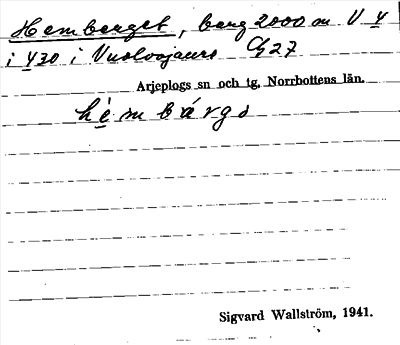 Hemberget, berg 2000 m V 4
i 430 i Vuolvojaure Cg 27
Arjeplogs sn och tg, Norrbottens län.
hèmbárgə
Sigvard Wallström, 1941.